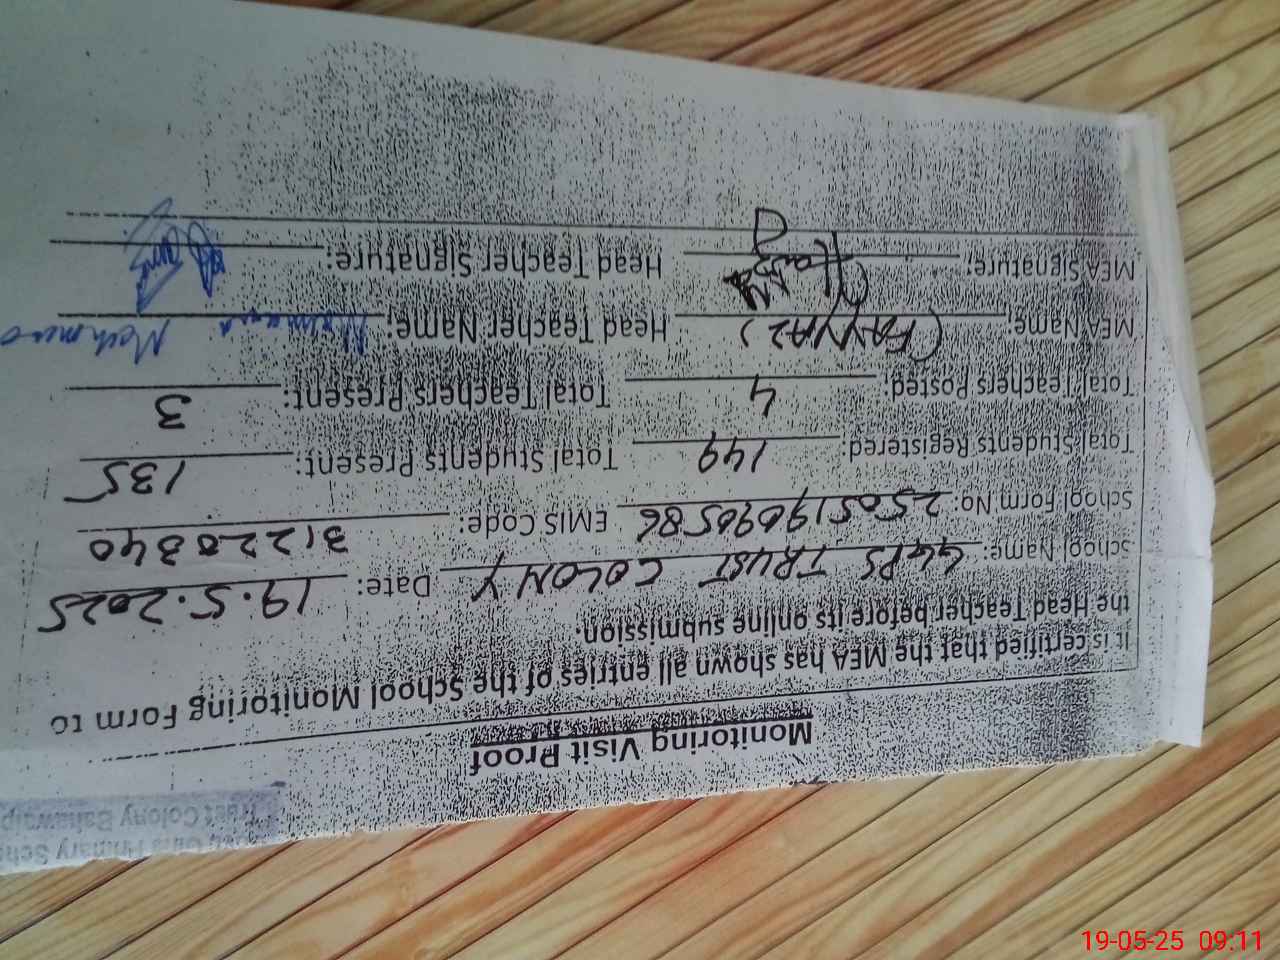 Primary Sch
Trust Colony Bahawalp
Monitoring Visit Proof
It is certified that the MEA has shown all entries of the School Monitoring Form to
the Head Teacher before its online submission.
School Name: GGPS TRUST COLONY Date: 19.5.2025
School Form No: EMIS Code: 31220340
Total Students Registered 149 Total Students Present: 135
Total Teachers Posted: 4 Total Teachers Present: 3
MEA Name: Head Teacher Name:
MEA Signature: Head Teacher Signature:
19-05-25 09:11